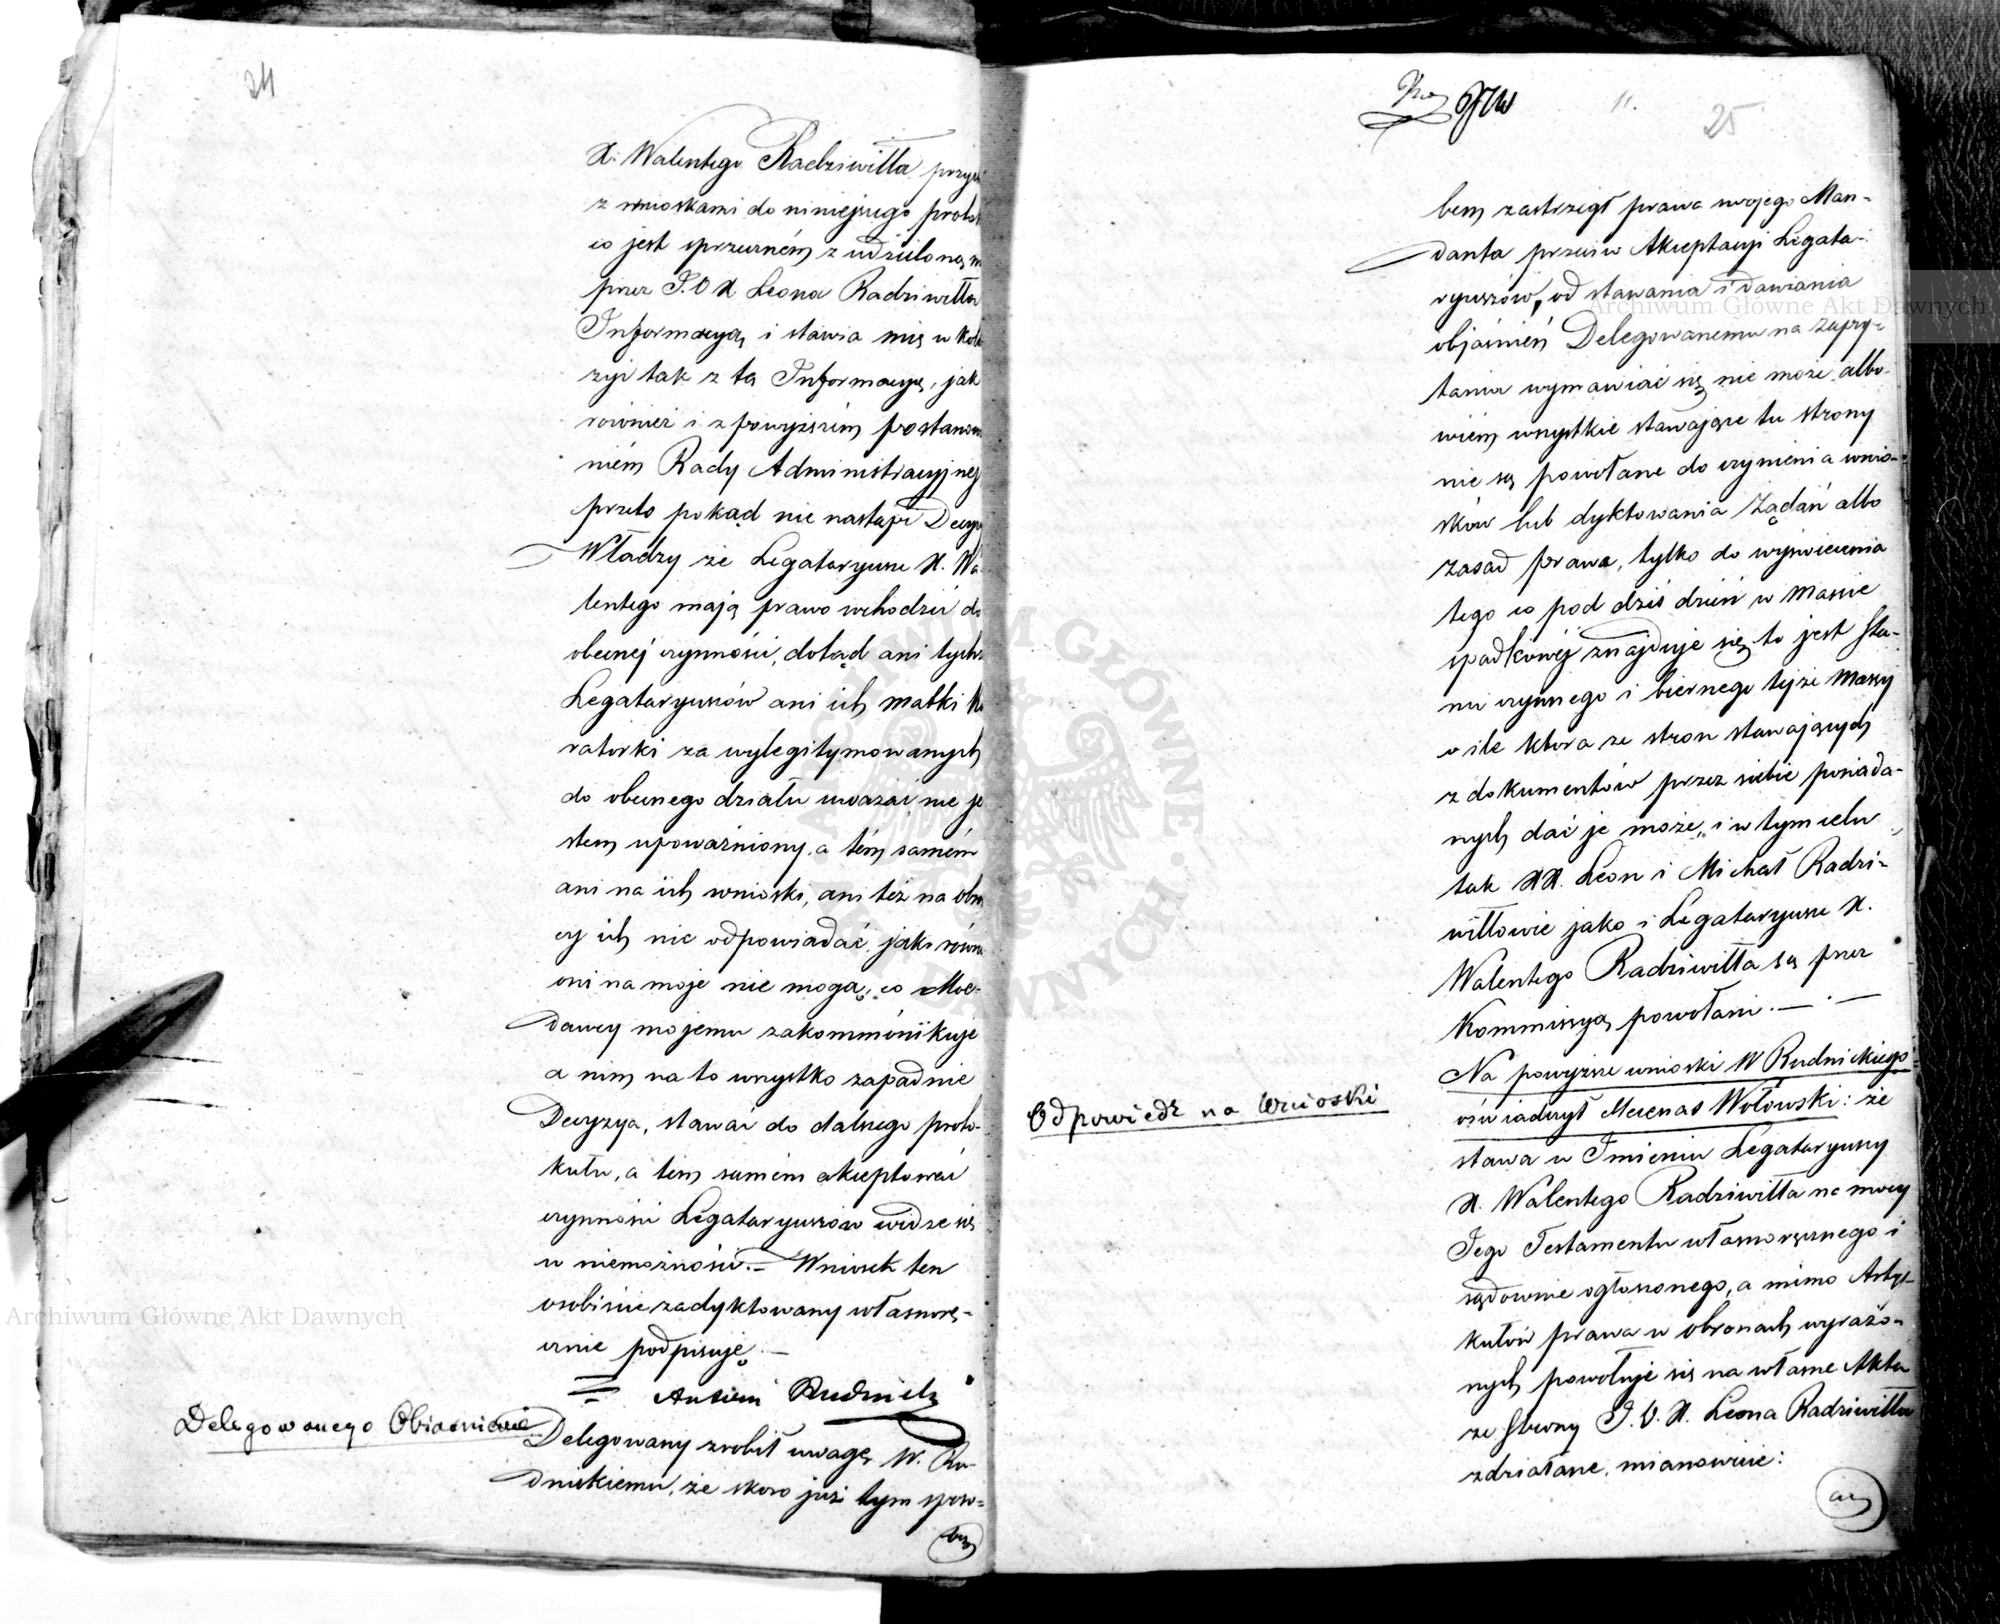 24
X: Walentego Radziwiłła przyw
z wnioskami do niniejszego protok
co jest sprzecznem z udzieloną m
przez J.O X. Leona Radziwiłła
Informacyą, i stawia mię w kol
zyi tak z tą Informacyą, jak
również i z powyższém postanow
niém Rady Administracyjnej
przeto pokąd nie nastąpi Decyz
Władzy że Legataryusze X. Wa
lentego mają prawo wchodzić do
obecnéj czynności, dotąd ani tychż
Legataryuszów ani ich matki Ku
ratorki za wylegitymowanych
do obecnego działu uważać nie je
stem upoważniony, a tém samém
ani na ich wnioski, ani téż na obro
cy ich nie odpowiadać, jako równie
oni na moje nie mogą, co Moc-
dawcy mojemu zakommunikuję
a nim na to wszystko zapadnie
Decyzya, stawać do dalszego proto-
kułu, a tém samém akceptować
czynności Legataryuszów widzę się
w niemożności.— Wniosek ten
osobiście zadyktowany własnorę-
cznie podpisuję.—
Antoni Rudnicki
Delegowanego Obiasnienie
Delegowany zrobił uwagę W. Ru-
dnickiemu, że skoro już tym spos-
bem
11.
25
bem zastrzegł prawa swojego Man-
danta przeciw Akceptacyi Legata-
ryuszów, od stawania i dawania
objaśnień Delegowanemu na zapy-
tania wymawiać się nie może albo-
wiem wszystkie stawające tu strony
nie są powołane do czynienia wnio-
sków lub dyktowania żądań albo
zasad prawa, tylko do wyświecenia
tego co pod dziś dzień w Massie
spadkowéj znajduje się, to jest Sta-
nu czynnego i biernego tejże Massy
o ile która ze stron stawających
z dokumentów przez siebie posiada-
nych dać je może, i w tym celu
tak XX. Leon i Michał Radzi-
wiłłowie jako i Legataryusze X.
Walentego Radziwiłła są przez
Kommissyą powołani.—·—
Odpowiedz na wnioski
Na powyższe wnioski W Rudnickiego
oświadczył Mecenas Wołowski: że
stawa w Imieniu Legataryuszy
X. Walentego Radziwiłła na mocy
Jego Testamentu własnoręcznego i
sądownie ogłoszonego, a mimo Arty-
kułów prawa w obronach wyrażo-
nych powołuje się na własne Akta
ze strony J.O.X. Leona Radziwiłła
zdziałane, mianowicie:
Archiwum Główne Akt Dawnych
Archiwum Główne Akt Dawnych
ARCHIWUM GŁÓWNE AKT DAWNYCH